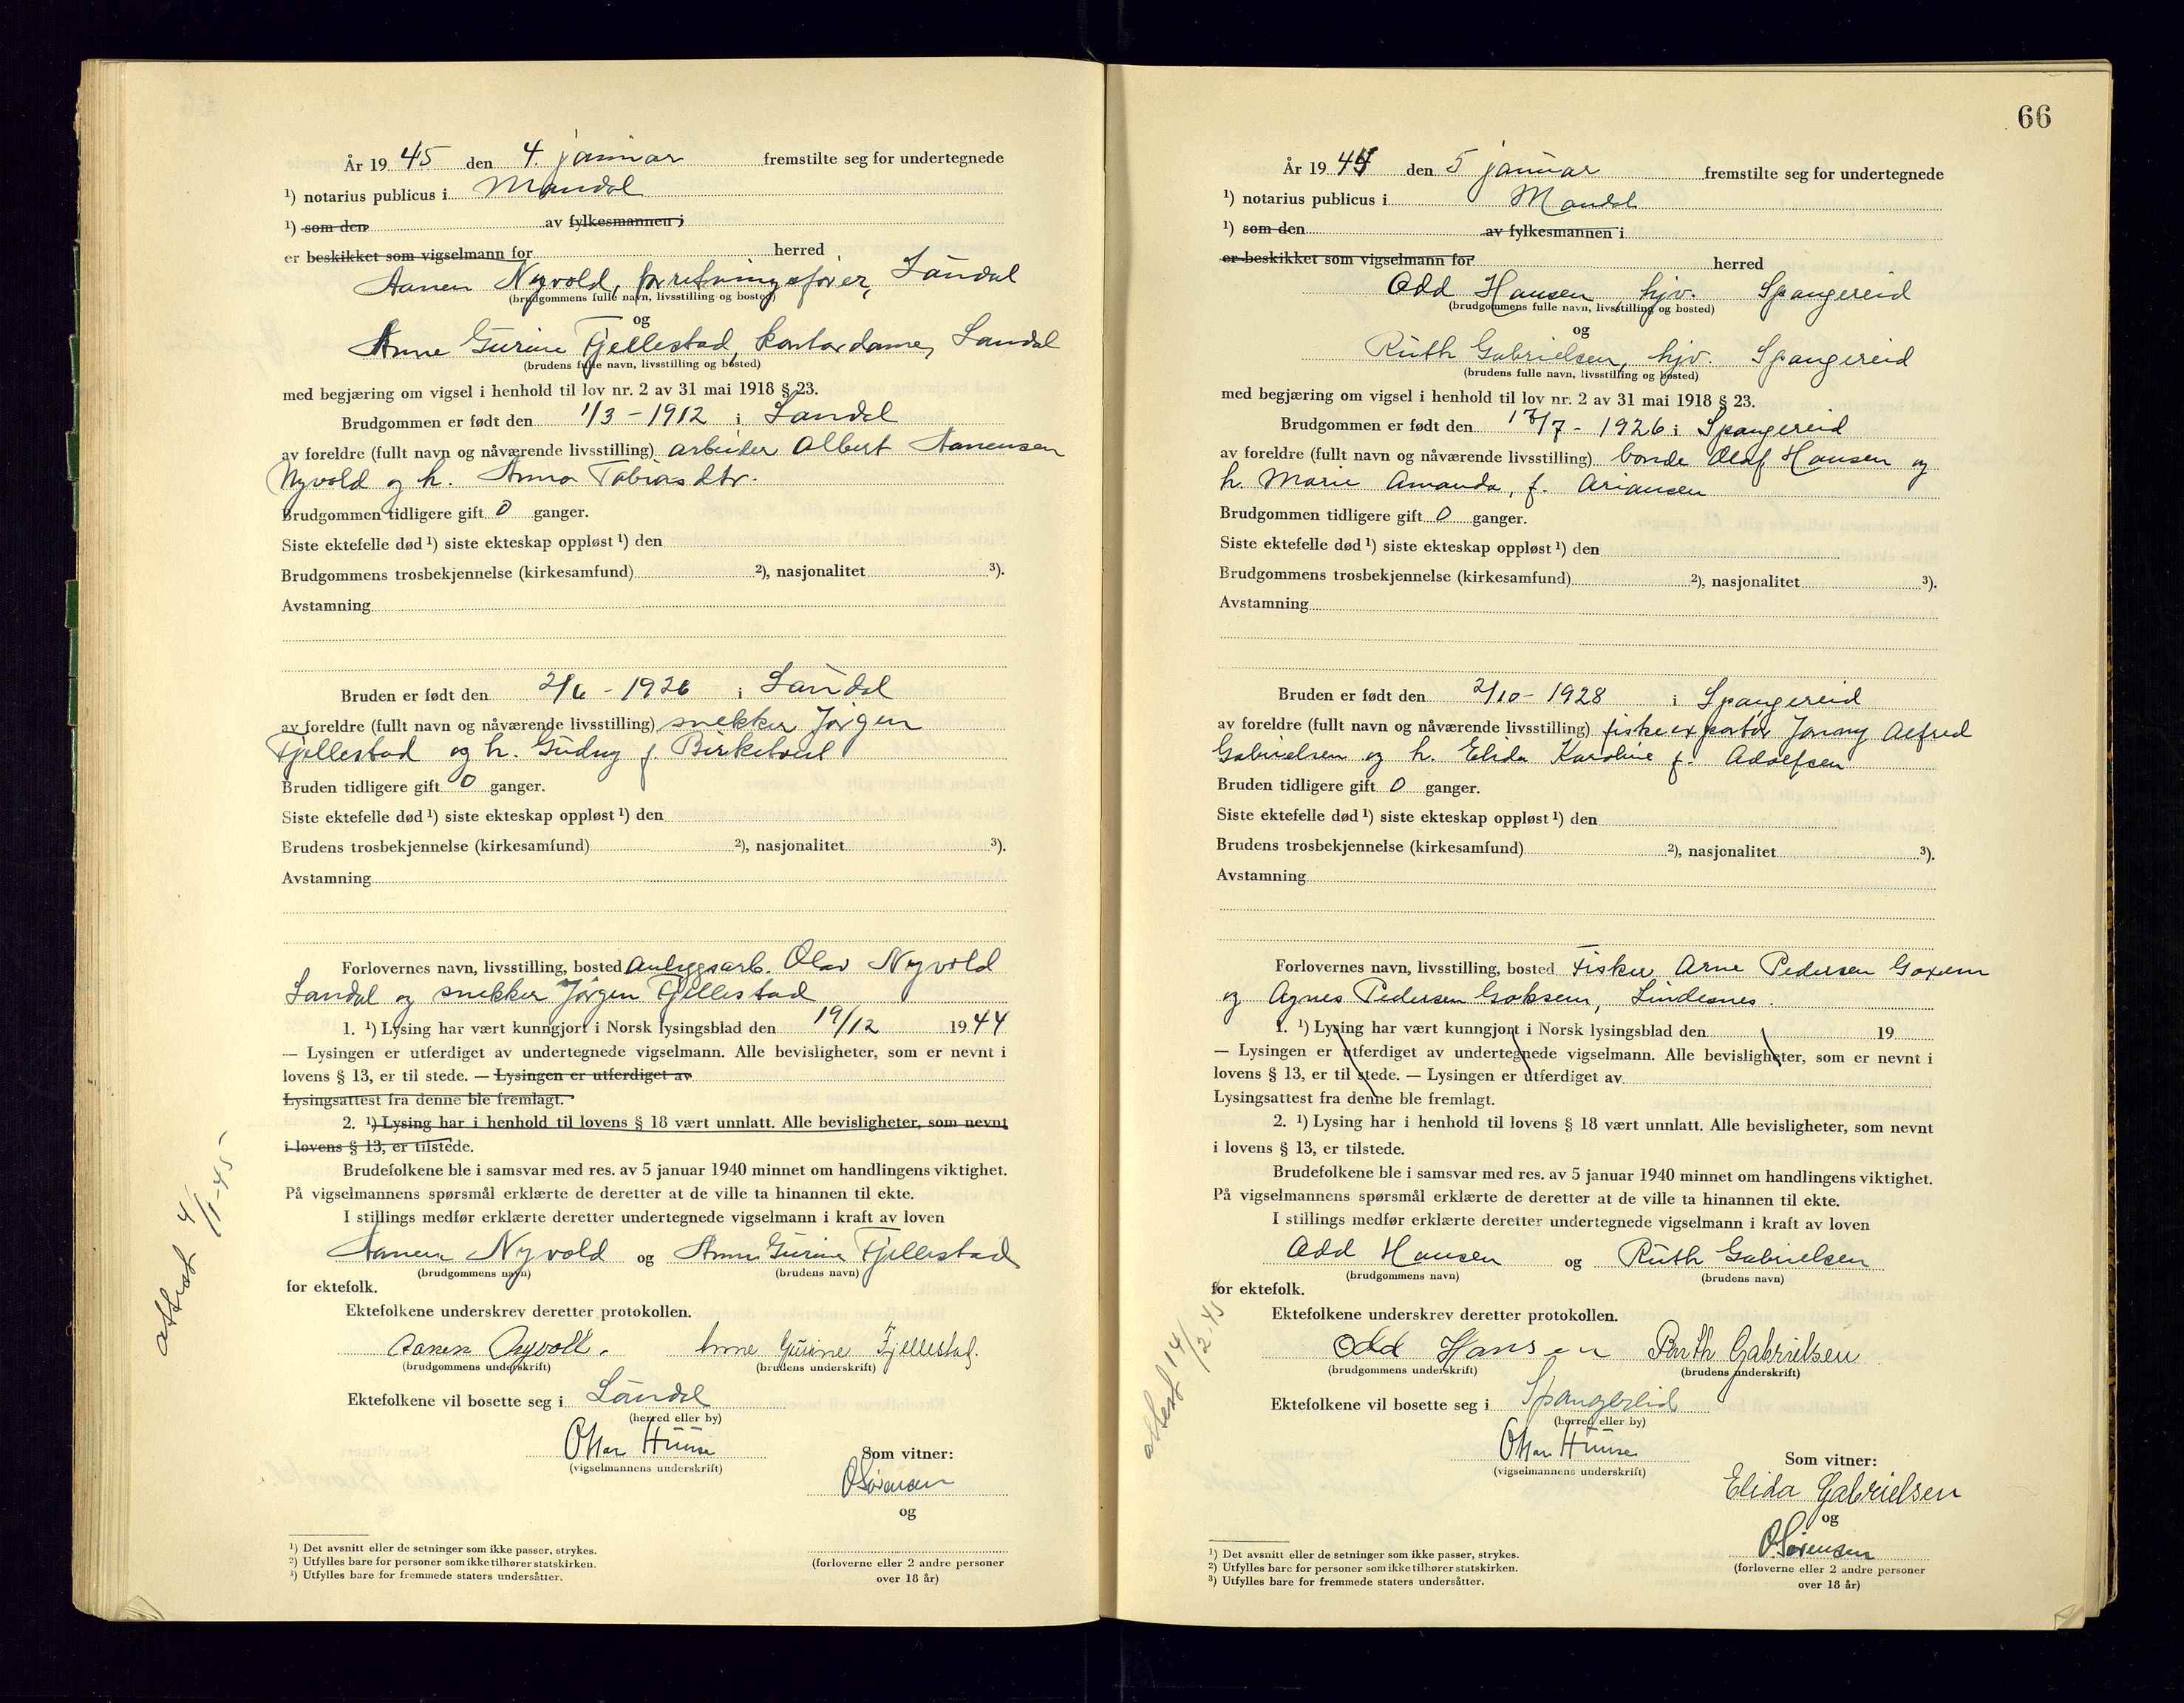 År 19 45 den 4. januar fremstilte seg for undertegnede
¹) notarius publicus i Mandal
¹) som den av fylkesmannen i
er beskikket som vigselmann for herred
Aanen Nyvold, forretningsfører, Laudal
(brudgommens fulle navn, livsstilling og bosted)
og
Anne Gurine Fjellestad, kontordame, Laudal
(brudens fulle navn, livsstilling og bosted)
med begjæring om vigsel i henhold til lov nr. 2 av 31 mai 1918 § 23.
Brudgommen er født den 1/3 - 1912 i Laudal
av foreldre (fullt navn og nåværende livsstilling) arbeider Albert Aanensen
Nyvold og h. Anna Tobiasdtr.
Brudgommen tidligere gift 0 ganger.
Siste ektefelle død ¹) siste ekteskap oppløst ¹) den
Brudgommens trosbekjennelse (kirkesamfund) ²), nasjonalitet ³).
Avstamning
Bruden er født den 2/6 - 1926 i Laudal
av foreldre (fullt navn og nåværende livsstilling) snekker Jørgen
Fjellestad og h. Gudny f. Birketveit
Bruden tidligere gift 0 ganger.
Siste ektefelle død ¹) siste ekteskap oppløst ¹) den
Brudens trosbekjennelse (kirkesamfund) ²), nasjonalitet ³).
Avstamning
Forlovernes navn, livsstilling, bosted Anleggsarb. Olav Nyvold
Laudal og snekker Jørgen Fjellestad
1. ¹) Lysing har vært kunngjort i Norsk lysingsblad den 19/12 1944
— Lysingen er utferdiget av undertegnede vigselmann. Alle bevisligheter, som er nevnt i
lovens § 13, er til stede. — Lysingen er utferdiget av
Lysingsattest fra denne ble fremlagt.
2. ¹) Lysing har i henhold til lovens § 18 vært unnlatt. Alle bevisligheter, som nevnt
i lovens § 13, er tilstede.
Brudefolkene ble i samsvar med res. av 5 januar 1940 minnet om handlingens viktighet.
På vigselmannens spørsmål erklærte de deretter at de ville ta hinannen til ekte.
I stillings medfør erklærte deretter undertegnede vigselmann i kraft av loven
Aanen Nyvold og Anne Gurine Fjellestad
(brudgommens navn) (brudens navn)
for ektefolk.
Ektefolkene underskrev deretter protokollen.
Aanen Nyvoll. Anne Gurine Fjellestad.
(brudgommens underskrift) (brudens underskrift)
Ektefolkene vil bosette seg i Laudal
(herred eller by)
Ottar Huuse
(vigselmannens underskrift)
Som vitner:
O Sørensen
og
(forloverne eller 2 andre personer
over 18 år)
¹) Det avsnitt eller de setninger som ikke passer, strykes.
²) Utfylles bare for personer som ikke tilhører statskirken.
³) Utfylles bare for fremmede staters undersåtter.
attest 4/1-45
66
År 19 45 den 5 januar fremstilte seg for undertegnede
¹) notarius publicus i Mandal
¹) som den av fylkesmannen i
er beskikket som vigselmann for herred
Odd Hansen, hjv. Spangereid
(brudgommens fulle navn, livsstilling og bosted)
og
Ruth Gabrielsen, hjv. Spangereid
(brudens fulle navn, livsstilling og bosted)
med begjæring om vigsel i henhold til lov nr. 2 av 31 mai 1918 § 23.
Brudgommen er født den 17/7 - 1926 i Spangereid
av foreldre (fullt navn og nåværende livsstilling) bonde Olaf Hansen og
h. Marie Amanda, f. Ariansen
Brudgommen tidligere gift 0 ganger.
Siste ektefelle død ¹) siste ekteskap oppløst ¹) den
Brudgommens trosbekjennelse (kirkesamfund) ²), nasjonalitet ³).
Avstamning
Bruden er født den 2/10 - 1928 i Spangereid
av foreldre (fullt navn og nåværende livsstilling) fiskeexportør Jonny Alfred
Gabrielsen og h. Elida Karoline f. Adolfsen
Bruden tidligere gift 0 ganger.
Siste ektefelle død ¹) siste ekteskap oppløst ¹) den
Brudens trosbekjennelse (kirkesamfund) ²), nasjonalitet ³).
Avstamning
Forlovernes navn, livsstilling, bosted Fisker Arne Pedersen Goxem
og Agnes Pedersen Goksem, Lindesnes.
1. ¹) Lysing har vært kunngjort i Norsk lysingsblad den 19
— Lysingen er utferdiget av undertegnede vigselmann. Alle bevisligheter, som er nevnt i
lovens § 13, er til stede. — Lysingen er utferdiget av
Lysingsattest fra denne ble fremlagt.
2. ¹) Lysing har i henhold til lovens § 18 vært unnlatt. Alle bevisligheter, som nevnt
i lovens § 13, er tilstede.
Brudefolkene ble i samsvar med res. av 5 januar 1940 minnet om handlingens viktighet.
På vigselmannens spørsmål erklærte de deretter at de ville ta hinannen til ekte.
I stillings medfør erklærte deretter undertegnede vigselmann i kraft av loven
Odd Hansen og Ruth Gabrielsen
(brudgommens navn) (brudens navn)
for ektefolk.
Ektefolkene underskrev deretter protokollen.
Odd Hansen Ruth Gabrielsen
(brudgommens underskrift) (brudens underskrift)
Ektefolkene vil bosette seg i Spangereid
(herred eller by)
Ottar Huuse
(vigselmannens underskrift)
Som vitner:
Elida Gabrielsen
og
O. Sørensen
(forloverne eller 2 andre personer
over 18 år)
¹) Det avsnitt eller de setninger som ikke passer, strykes.
²) Utfylles bare for personer som ikke tilhører statskirken.
³) Utfylles bare for fremmede staters undersåtter.
attest 14/2 45